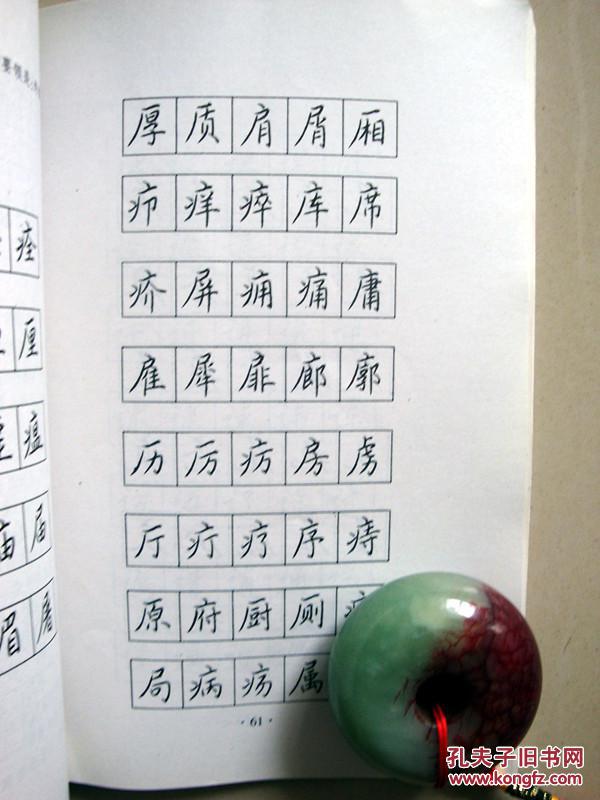 要领是
厚质肩屑厢
疖痒瘁库席
疥屏痈痛庸
雇犀扉廊廓
历厉疠房虏
厅疔疗序痔
原府厨厕
局病疡属
· 61 ·
痊
厘
瘟
届
眉
孔夫子旧书网
www.kongfz.com